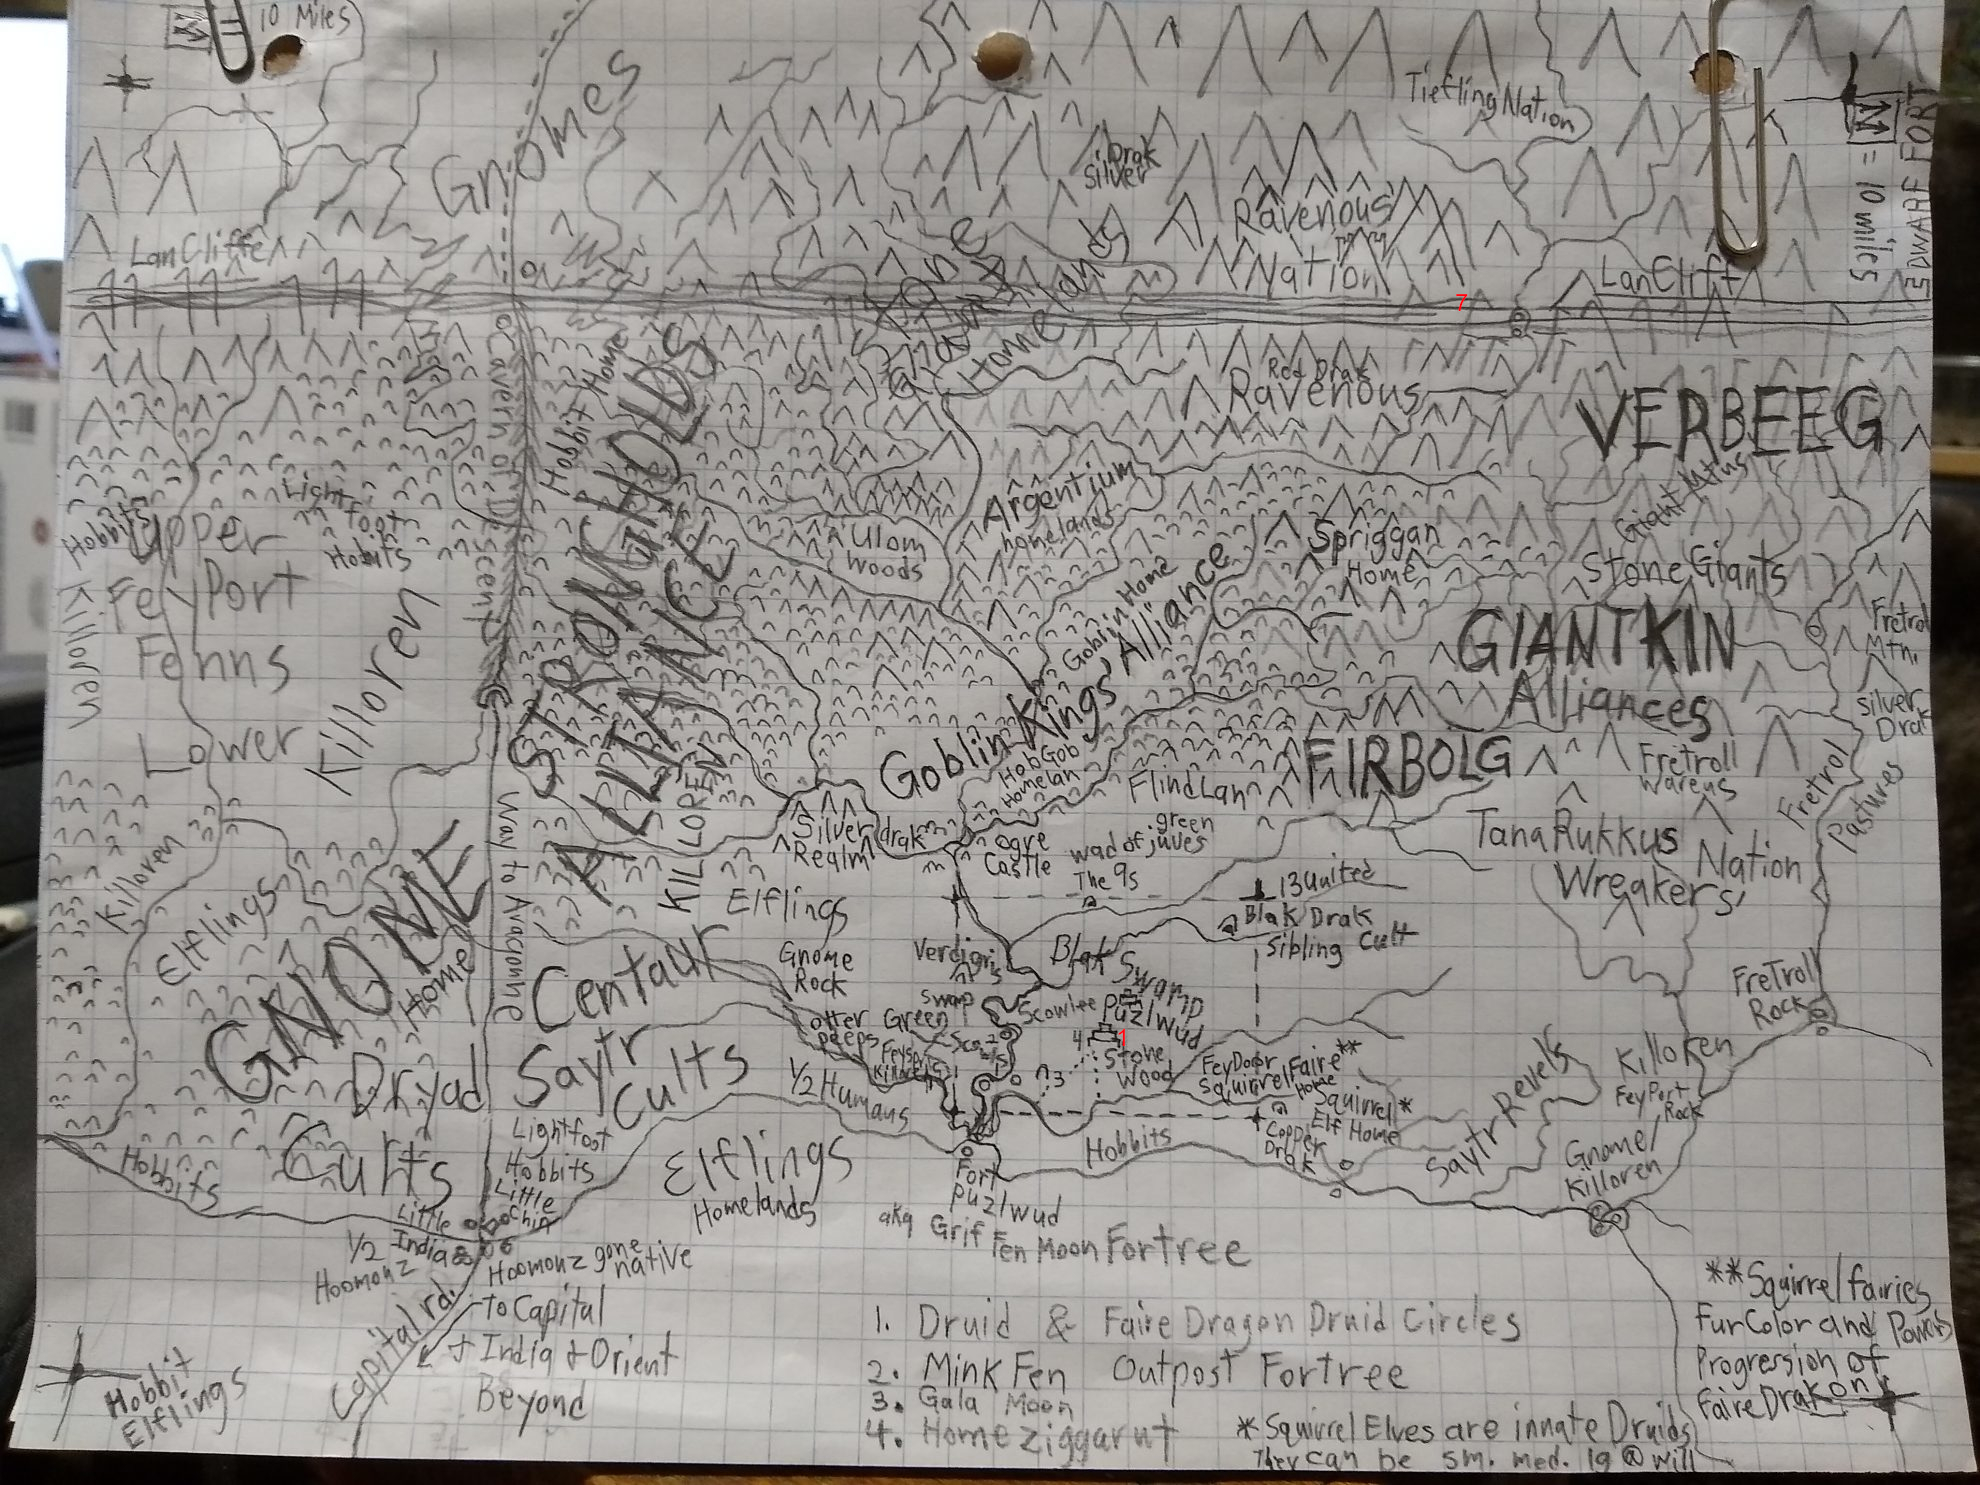 10 Miles
Tiefling Nation
= 10 miles
DWARF FORT
Gnomes
Drak
Silver
Ravenous
Nation
LanCliffe
LanClift
7
Homelands
Red Drak
Ravenous
VERBEEG
Hobbit Home
Cavern of Descent
STRONGHOLDS
ALLIANCE
Argentium
homelands
Giant Mtns
Light foot
Hobuts
Hobbits
Upper
FeyPort
Fenns
Lower
Killoren
Killoren
Ulom
Woods
Spriggan
Home
Stone Giants
Goblin Home
GIANTKIN
Alliances
Fretrol
Mtn.
Silver
Drak
Goblin Kings, Alliance
HobGob
Homelan
FlindLan
FIRBOLG
Fretroll
Wareus
Fretrol
Pastures
KILLOREN
Way to Avacionne
Silver drak
Realm
Ogre
Castle
green
wad of juves
The 9s
TanaRukkus
Nation
Wreakers'
13 United
Blak Drak
Sibling Cult
Killoren
Elflings
GNOME
Home
Elflings
Gnome
Rock
Verdigris
Swamp
Blak Swamp
Centaur
Saytr
Cults
Scowlee
Puzlwud
Otter
Peeps
Green
FreTroll
Rock
4
1
Stone
Wood
3
FeyDoor
Squirrel Faire**
Home
Squirrel*
Elf Home
Copper
Drak
1/2 Humans
Killoren
FeyPort
Rock
Saytr Revels
Dryad
Cults
Hobbits
Hobbits
Lightfoot
Hobbits
Little
Chin
Elflings
Homelands
Fort
Puzlwud
aka Grif Fen Moon Fortree
Gnome/
Killoren
Little
India
1/2
Hoomonz
Hoomonz gone
native
Capital rd.
To Capital
India & Orient
Beyond
Hobbit
Elflings
1. Druid & Faire Dragon Druid Circles
2. Mink Fen Outpost Fortree
3. Gala Moon
4. Home Ziggarut
**Squirrel fairies
Fur Color and Powers
Progression of
Faire Drakon
*Squirrel Elves are innate Druids
They can be sm. med. lg @ will